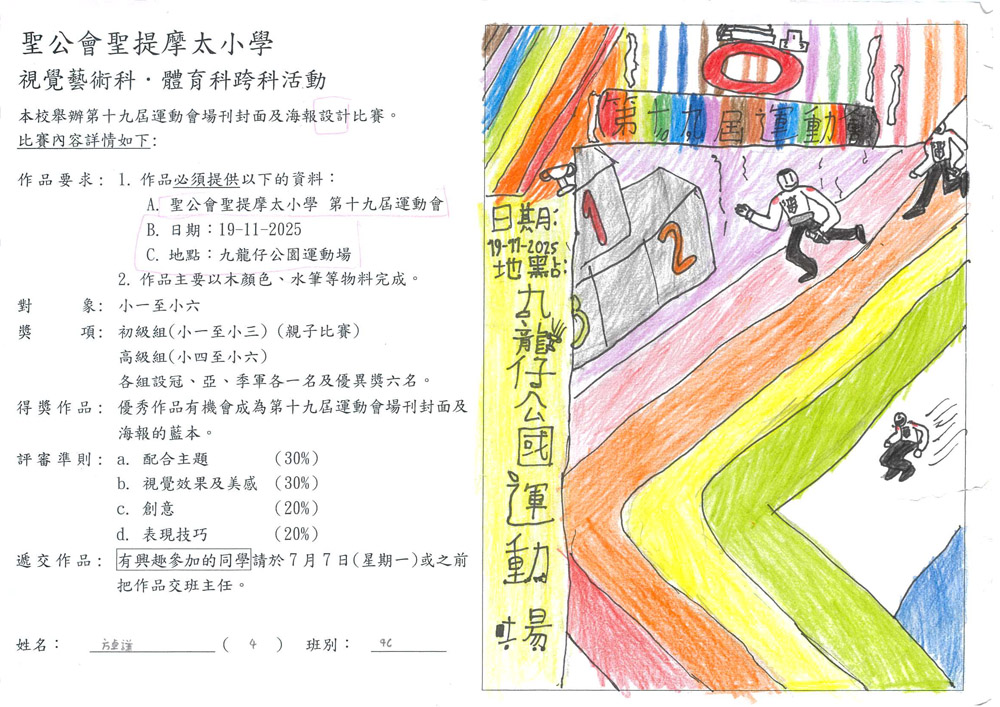 聖公會聖提摩太小學
視覺藝術科．體育科跨科活動
本校舉辦第十九屆運動會場刊封面及海報設計比賽。
比賽內容詳情如下:
作品要求: 1. 作品必須提供以下的資料：
A. 聖公會聖提摩太小學 第十九屆運動會
B. 日期：19-11-2025
C. 地點：九龍仔公園運動場
2. 作品主要以木顏色、水筆等物料完成。
對 象: 小一至小六
獎 項: 初級組(小一至小三)(親子比賽)
高級組(小四至小六)
各組設冠、亞、季軍各一名及優異獎六名。
得獎作品: 優秀作品有機會成為第十九屆運動會場刊封面及
海報的藍本。
評審準則: a. 配合主題 (30%)
b. 視覺效果及美感 (30%)
c. 創意 (20%)
d. 表現技巧 (20%)
遞交作品: 有興趣參加的同學請於7月7日(星期一)或之前
把作品交班主任。
姓名： ( 4 ) 班別：
第十九屆運動會
日期:
19-11-2025
地點:
九龍仔公國運動場
1
2
3